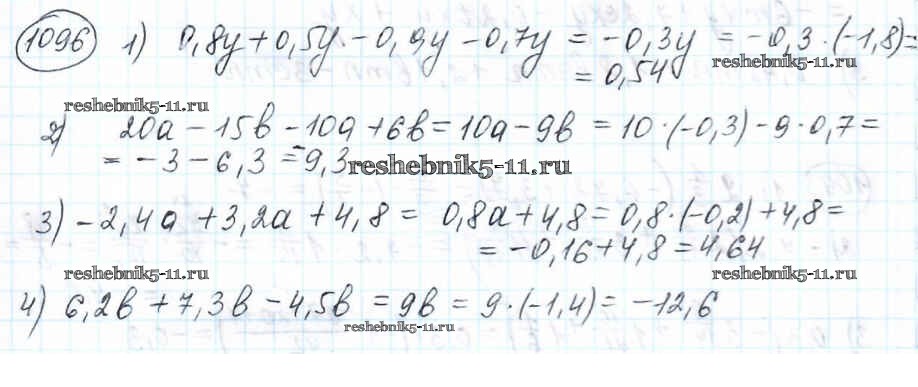 1096 1) 0,8y + 0,5y - 0,9y - 0,7y = -0,3y = -0,3 · (-1,8) =
= 0,54
reshebnik5-11.ru reshebnik5-11.ru
2) 20a - 15b - 10a + 6b = 10a - 9b = 10 · (-0,3) - 9 · 0,7 =
= -3 - 6,3 = -9,3
reshebnik5-11.ru
3) -2,4a + 3,2a + 4,8 = 0,8a + 4,8 = 0,8 · (-0,2) + 4,8 =
= -0,16 + 4,8 = 4,64
reshebnik5-11.ru reshebnik5-11.ru
4) 6,2b + 7,3b - 4,5b = 9b = 9 · (-1,4) = -12,6
reshebnik5-11.ru